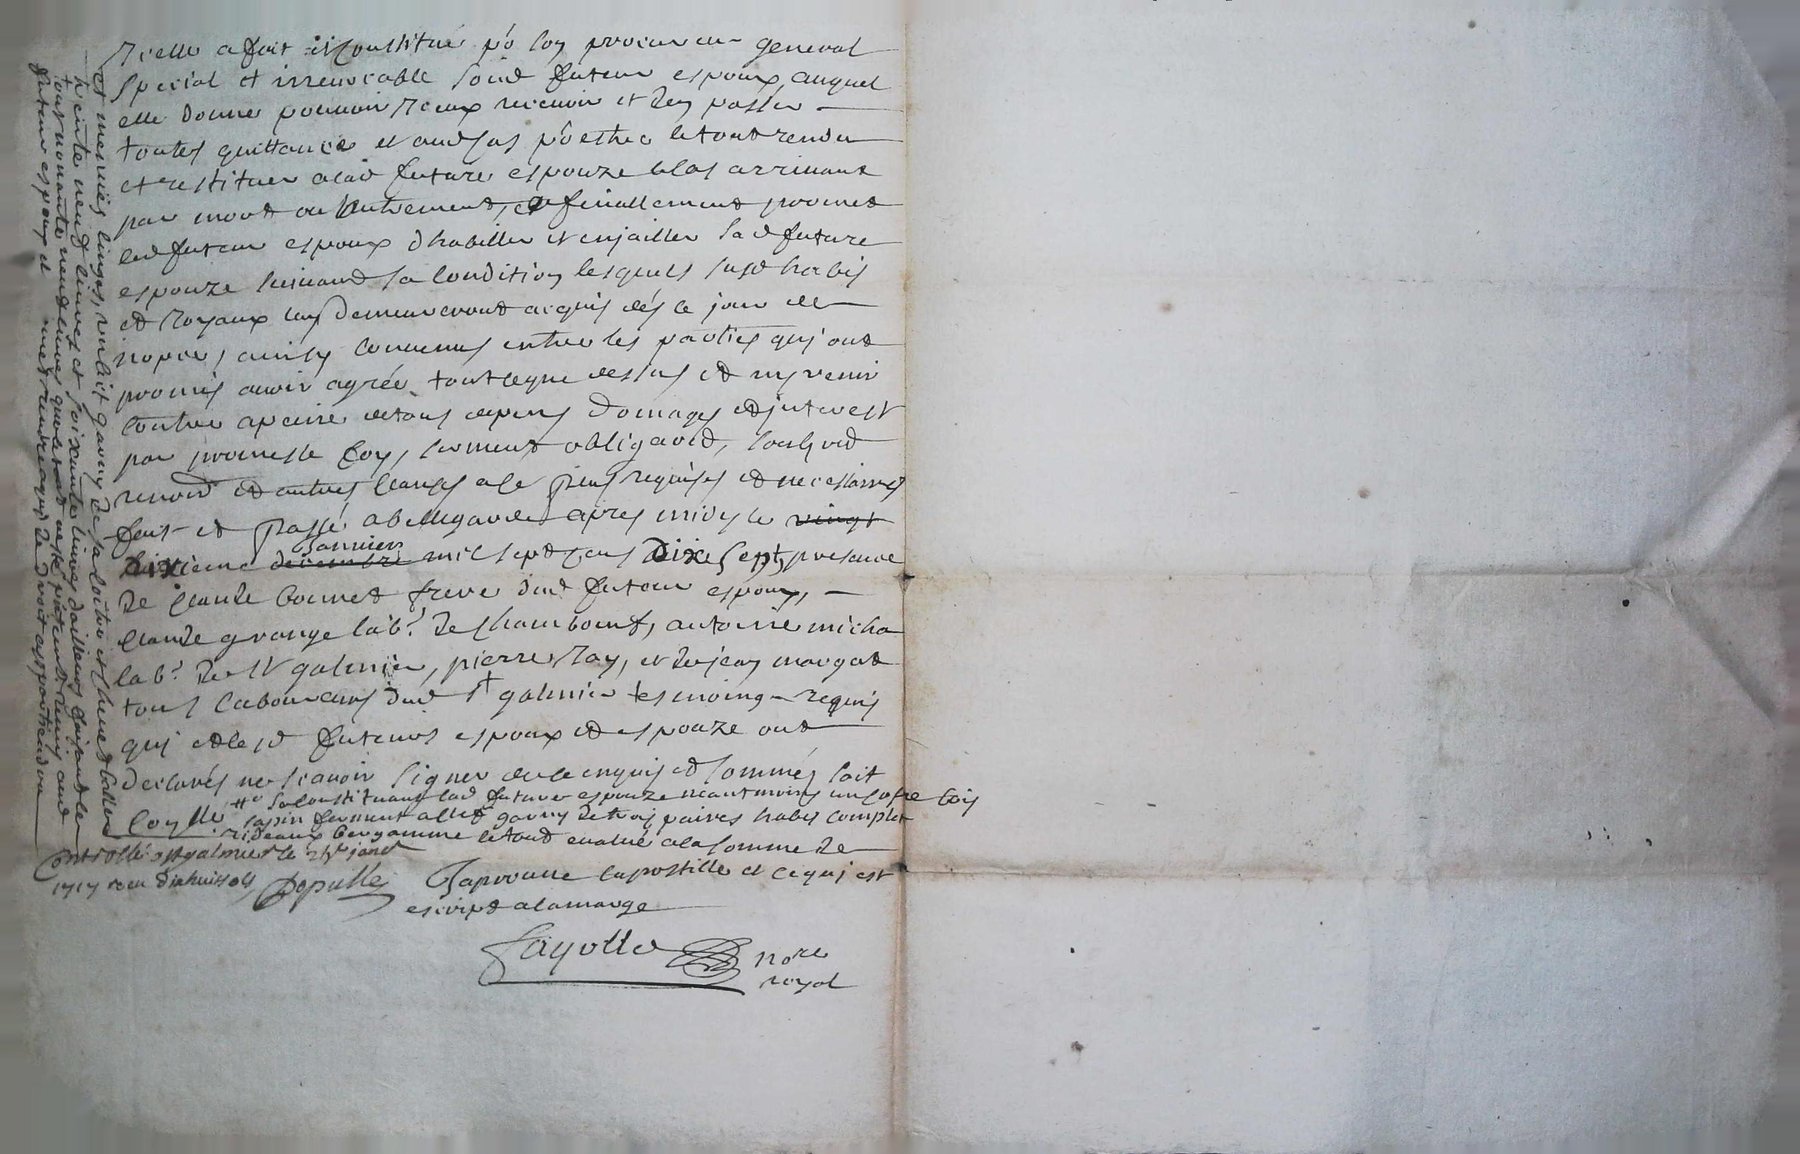 Icelle a fait et constitué po. son procureur general
special et irrevocable sond. futeur espoux auquel
elle donne pouvoir Iceux recevoir et den passer
toutes quittance et aud. cas po. estre le tout rendu
et restituer a lad. future espouze le cas arrivant
par mort ou autrement, et finallement promet
led. futeur espoux d'habiller et enjailler sad. future
espouze suivand sa condition lesquels susd. habis
et Joyaux luy demeureront acquis dés le jour de
nopces, ainsy convenus entre les parties quy ont
promis avoir agrée tout ce que dessus et ny venir
contre a peine de tous depens domages et interest
par promesse foy, serment obligaõd, soubzmd
renond et autres clauses a ce plus requises et necessaires
fait et passé a bellegarde apres midy le vingt
dixieme decembre janvier mil sept cens dix sept, presance
de Claude bonnet frere dud. futeur espoux,
Claude grange lab.r de chambeuf, antoine micha
lab.r de St galmier, pierre Ray, et de jean margot
tous laboureurs dud. St galmier tesmoings requis
quy et lesd. futeurs espoux et espouze ont
declarés ne scavoir signer de ce enquis et sommés soit
Con.llé
# se constituant lad. future espouze neantmoins un cofre bois
sapin fermant a clef garny de trois paires habis complet
rideaux bergamme le tout evalué a la somme de
trente neuf livres et soixante livres d'ailleurs faisant le
tout nonante neuf livres
futeur espoux et
et mesmes linges, un lit garny de sa coitre et
Controllé a St galmier le 24e janer
1717 receu dix huit sols Depulley
J'aprouve l'apostille et ce quj est
escript a la marge
Fayolle nore
royal